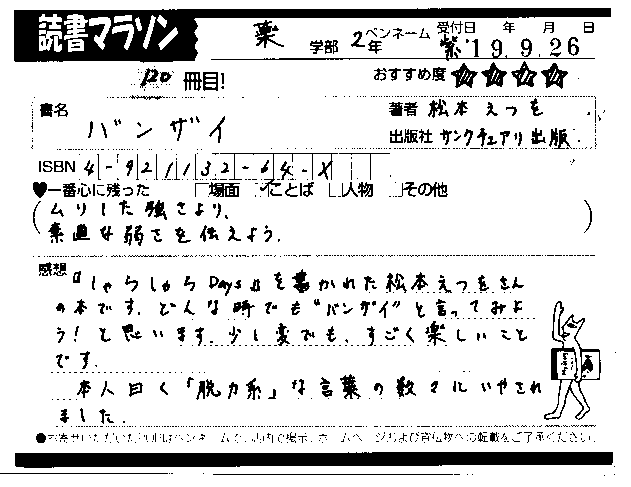 読書マラソン
薬 学部 2年 ペンネーム 紫 受付日 年 月 日 '19.9.26
120 冊目! おすすめ度 ★★★★
書名 バンザイ
著者 松本 えつを
出版社 サンクチュアリ出版
ISBN 4-921132-64-X
♥一番心に残った □場面 ☑ことば □人物 □その他
(ムリした強さより、
素直な弱さを伝えよう。)
感想 『しゃらしゃらDays』を書かれた松本えつをさん
の本です。どんな時でも“バンザイ”と言ってみよ
う!と思います。少し変でも、すごく楽しいこと
です。
本人曰く「脱力系」な言葉の数々にいやされ
ました。
●お寄せいただいたPOPはペンネームで、店内で掲示、ホームページおよび宣伝物への転載をご了承ください。